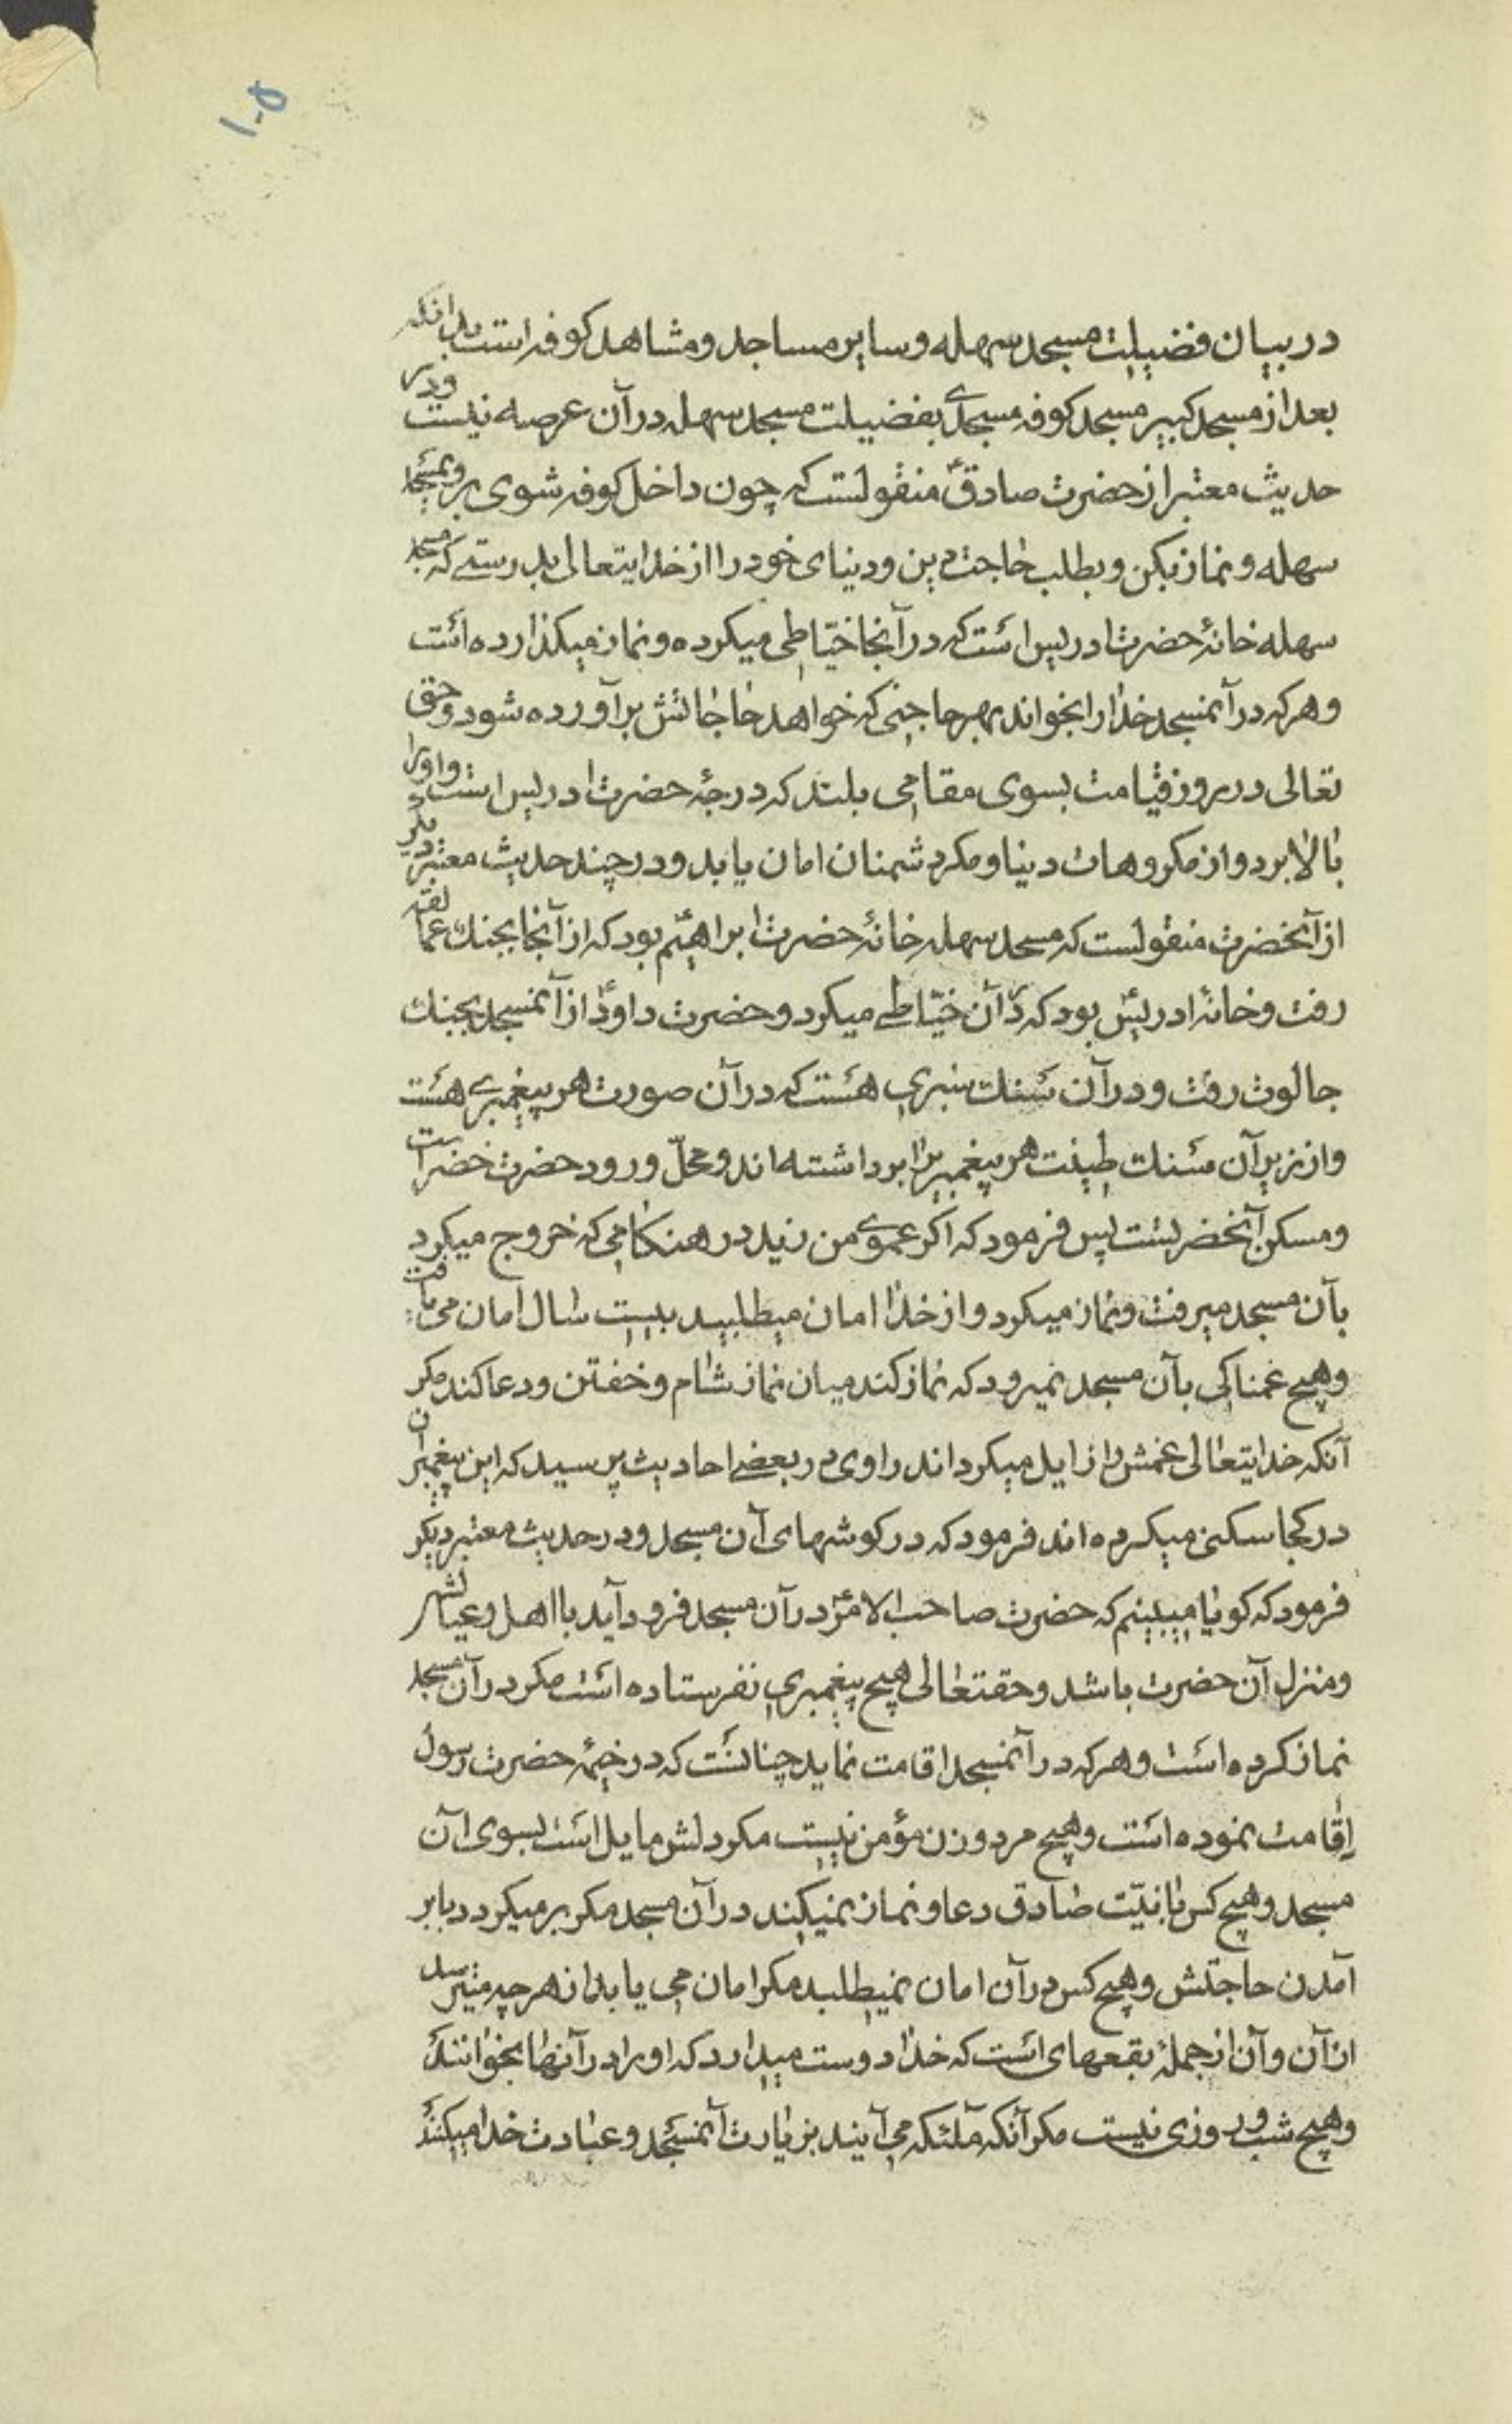 ۱۰۵
در بیان فضیلت مسجد سهله و سایر مساجد و مشاهد کوفه است بدانکه
بعد از مسجد کبیر مسجد کوفه مسجدی بفضیلت مسجد سهله در آن عرصه نیست و در
حدیث معتبر از حضرت صادقؑ منقولست که چون داخل کوفه شوی برو بمسجد
سهله و نماز بکن و بطلب حاجت دین و دنیای خود را از خدایتعالی بدرستی که مسجد
سهله خانهٔ حضرت ادریس است که در آنجا خیّاطی میکرده و نماز میکذارده است
و هر که در آنمسجد خدا را بخواند بهر حاجتی که خواهد حاجاتش برآورده شود و حق
تعالی در روز قیامت بسوی مقامی بلند که درجهٔ حضرت ادریس است او را
بالا برد و از مکروهات دنیا و مکر دشمنان امان یابد و در چند حدیث معتبر دیگر
از آنحضرت منقولست که مسجد سهله خانهٔ حضرت ابراهیم بود که از آنجا بجنك عمالقه
رفت و خانهٔ ادریس بود که در آن خیّاطی میکرد و حضرت داودؑ از آنمسجد بجنك
جالوت رفت و در آن سنك سبزی هست که در آن صورت هر پیغمبری هست
و از زیر آن سنك طینت هر پیغمبر را برداشته اند و محلّ ورود حضرت خضر است
و مسکن آنحضرتست پس فرمود که اکر عموی من زید در هنکامی که خروج میکرد
بآن مسجد میرفت و نماز میکرد و از خدا امان میطلبید بیست سال امان می یافت
و هیچ غمناکی بآن مسجد نمیرود که نماز کند میان نماز شام و خفتن و دعا کند مکر
آنکه خدایتعالی غمش را زایل میکرداند راوی در بعضی احادیث پرسید که این پیغمبران
در کجا سکنی میکرده اند فرمود که در کوشهای آن مسجد و در حدیث معتبر دیکر
فرمود که کویا میبینم که حضرت صاحب الامرؑ در آن مسجد فرود آید با اهل و عیالش
و منزل آن حضرت باشد و حقتعالی هیچ پیغمبری نفرستاده است مکر در آن مسجد
نماز کرده است و هر که در آنمسجد اقامت نماید چنانست که در خیمهٔ حضرت رسول
اقامت نموده است و هیچ مرد و زن مؤمن نیست مکر دلش مایل است بسوی آن
مسجد و هیچ کس با نیّت صادق دعا و نماز نمیکند در آن مسجد مکر بر میکردد با بر
آمدن حاجتش و هیچ کس در آن امان نمیطلبد مکر امان می یابد از هر چه میترسد
از آن و آن از جملهٔ بقعهای است که خدا دوست میدارد که او را در آنها بخوانند
و هیچ شب و روزی نیست مکر آنکه ملئکه می آیند بزیارت آنمسجد و عبادت خدا میکنند